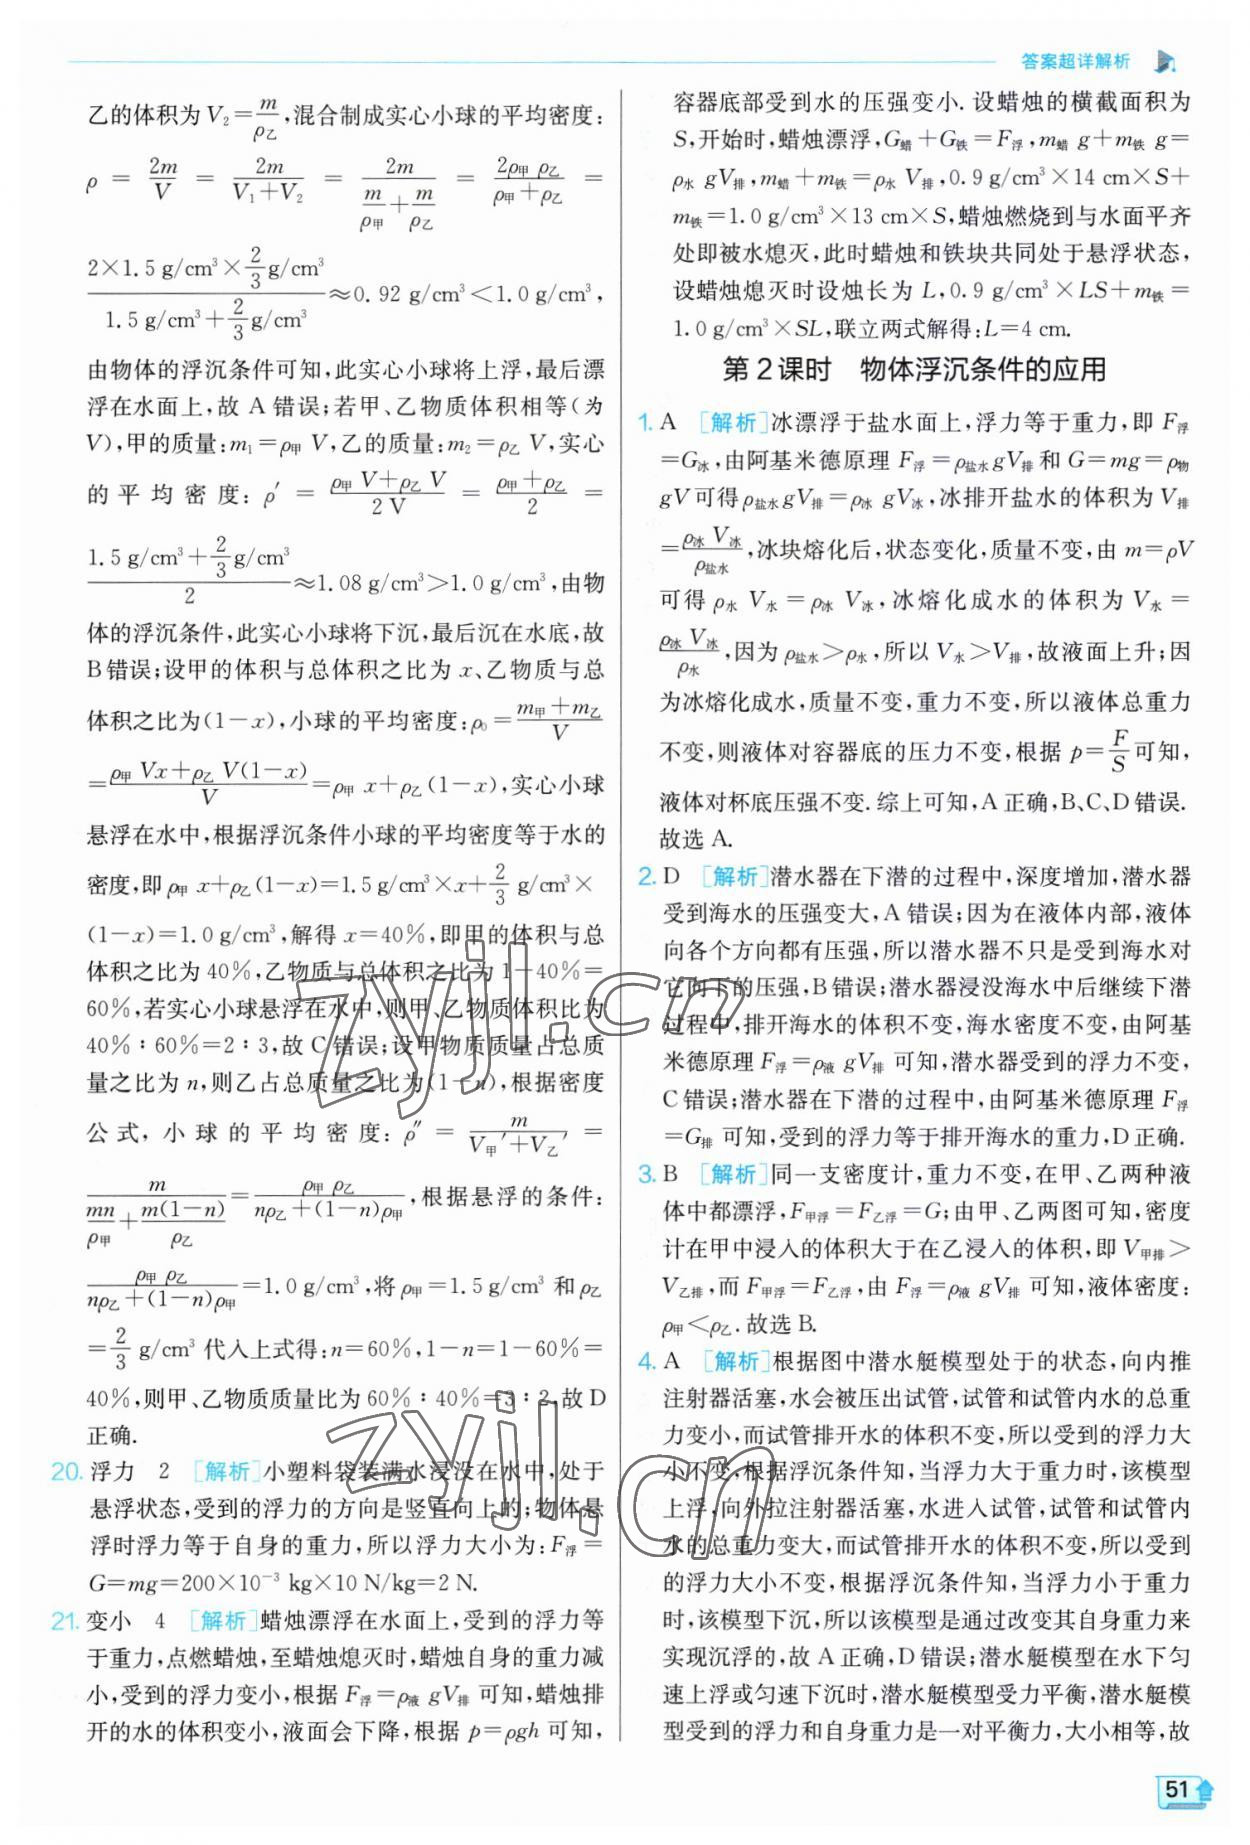 答案超详解析
乙的体积为 V₂=m/ρ乙,混合制成实心小球的平均密度:
ρ = 2m/V = 2m/(V₁+V₂) = 2m/(m/ρ甲+m/ρ乙) = 2ρ甲 ρ乙/(ρ甲+ρ乙) =
(2×1.5 g/cm³×2/3 g/cm³)/(1.5 g/cm³+2/3 g/cm³)≈0.92 g/cm³<1.0 g/cm³,
由物体的浮沉条件可知,此实心小球将上浮,最后漂
浮在水面上,故 A 错误;若甲、乙物质体积相等(为
V),甲的质量:m₁=ρ甲 V,乙的质量:m₂=ρ乙 V,实心
的平均密度:ρ′ = (ρ甲 V+ρ乙 V)/2 V = (ρ甲+ρ乙)/2 =
(1.5 g/cm³+2/3 g/cm³)/2≈1.08 g/cm³>1.0 g/cm³,由物
体的浮沉条件,此实心小球将下沉,最后沉在水底,故
B 错误;设甲的体积与总体积之比为 x、乙物质与总
体积之比为(1-x),小球的平均密度:ρ₀=(m甲+m乙)/V
=(ρ甲 Vx+ρ乙 V(1-x))/V=ρ甲 x+ρ乙(1-x),实心小球
悬浮在水中,根据浮沉条件小球的平均密度等于水的
密度,即 ρ甲 x+ρ乙(1-x)=1.5 g/cm³×x+2/3 g/cm³×
(1-x)=1.0 g/cm³,解得 x=40%,即甲的体积与总
体积之比为 40%,乙物质与总体积之比为 1-40%=
60%,若实心小球悬浮在水中,则甲、乙物质体积比为
40%∶60%=2∶3,故 C 错误;设甲物质质量占总质
量之比为 n,则乙占总质量之比为(1-n),根据密度
公式,小球的平均密度:ρ″ = m/(V甲′+V乙′) =
m/(mn/ρ甲+m(1-n)/ρ乙)=ρ甲 ρ乙/(nρ乙+(1-n)ρ甲),根据悬浮的条件:
ρ甲 ρ乙/(nρ乙+(1-n)ρ甲)=1.0 g/cm³,将 ρ甲=1.5 g/cm³ 和 ρ乙
=2/3 g/cm³ 代入上式得:n=60%,1-n=1-60%=
40%,则甲、乙物质质量比为 60%∶40%=3∶2,故 D
正确.
20. 浮力 2 [解析]小塑料袋装满水浸没在水中,处于
悬浮状态,受到的浮力的方向是竖直向上的;物体悬
浮时浮力等于自身的重力,所以浮力大小为:F浮=
G=mg=200×10⁻³ kg×10 N/kg=2 N.
21. 变小 4 [解析]蜡烛漂浮在水面上,受到的浮力等
于重力,点燃蜡烛,至蜡烛熄灭时,蜡烛自身的重力减
小,受到的浮力变小,根据 F浮=ρ液 gV排 可知,蜡烛排
开的水的体积变小,液面会下降,根据 p=ρgh 可知,
容器底部受到水的压强变小.设蜡烛的横截面积为
S,开始时,蜡烛漂浮,G蜡+G铁=F浮,m蜡 g+m铁 g=
ρ水 gV排,m蜡+m铁=ρ水 V排,0.9 g/cm³×14 cm×S+
m铁=1.0 g/cm³×13 cm×S,蜡烛燃烧到与水面平齐
处即被水熄灭,此时蜡烛和铁块共同处于悬浮状态,
设蜡烛熄灭时设烛长为 L,0.9 g/cm³×LS+m铁=
1.0 g/cm³×SL,联立两式解得:L=4 cm.
第 2 课时 物体浮沉条件的应用
1. A [解析]冰漂浮于盐水面上,浮力等于重力,即 F浮
=G冰,由阿基米德原理 F浮=ρ盐水gV排 和 G=mg=ρ物
gV可得 ρ盐水gV排=ρ冰 gV冰,冰排开盐水的体积为 V排
=ρ冰 V冰/ρ盐水,冰块熔化后,状态变化,质量不变,由 m=ρV
可得 ρ水 V水=ρ冰 V冰,冰熔化成水的体积为 V水=
ρ冰 V冰/ρ水,因为 ρ盐水>ρ水,所以 V水>V排,故液面上升;因
为冰熔化成水,质量不变,重力不变,所以液体总重力
不变,则液体对容器底的压力不变,根据 p=F/S可知,
液体对杯底压强不变.综上可知,A 正确,B、C、D 错误.
故选 A.
2. D [解析]潜水器在下潜的过程中,深度增加,潜水器
受到海水的压强变大,A 错误;因为在液体内部,液体
向各个方向都有压强,所以潜水器不只是受到海水对
它向下的压强,B 错误;潜水器浸没海水中后继续下潜
过程中,排开海水的体积不变,海水密度不变,由阿基
米德原理 F浮=ρ液 gV排 可知,潜水器受到的浮力不变,
C 错误;潜水器在下潜的过程中,由阿基米德原理 F浮
=G排 可知,受到的浮力等于排开海水的重力,D 正确.
3. B [解析]同一支密度计,重力不变,在甲、乙两种液
体中都漂浮,F甲浮=F乙浮=G;由甲、乙两图可知,密度
计在甲中浸入的体积大于在乙浸入的体积,即 V甲排>
V乙排,而 F甲浮=F乙浮,由 F浮=ρ液 gV排 可知,液体密度:
ρ甲<ρ乙.故选 B.
4. A [解析]根据图中潜水艇模型处于的状态,向内推
注射器活塞,水会被压出试管,试管和试管内水的总重
力变小,而试管排开水的体积不变,所以受到的浮力大
小不变,根据浮沉条件知,当浮力大于重力时,该模型
上浮,向外拉注射器活塞,水进入试管,试管和试管内
水的总重力变大,而试管排开水的体积不变,所以受到
的浮力大小不变,根据浮沉条件知,当浮力小于重力
时,该模型下沉,所以该模型是通过改变其自身重力来
实现沉浮的,故 A 正确,D 错误;潜水艇模型在水下匀
速上浮或匀速下沉时,潜水艇模型受力平衡,潜水艇模
型受到的浮力和自身重力是一对平衡力,大小相等,故
51
zyjl.cn
zyjl.cn